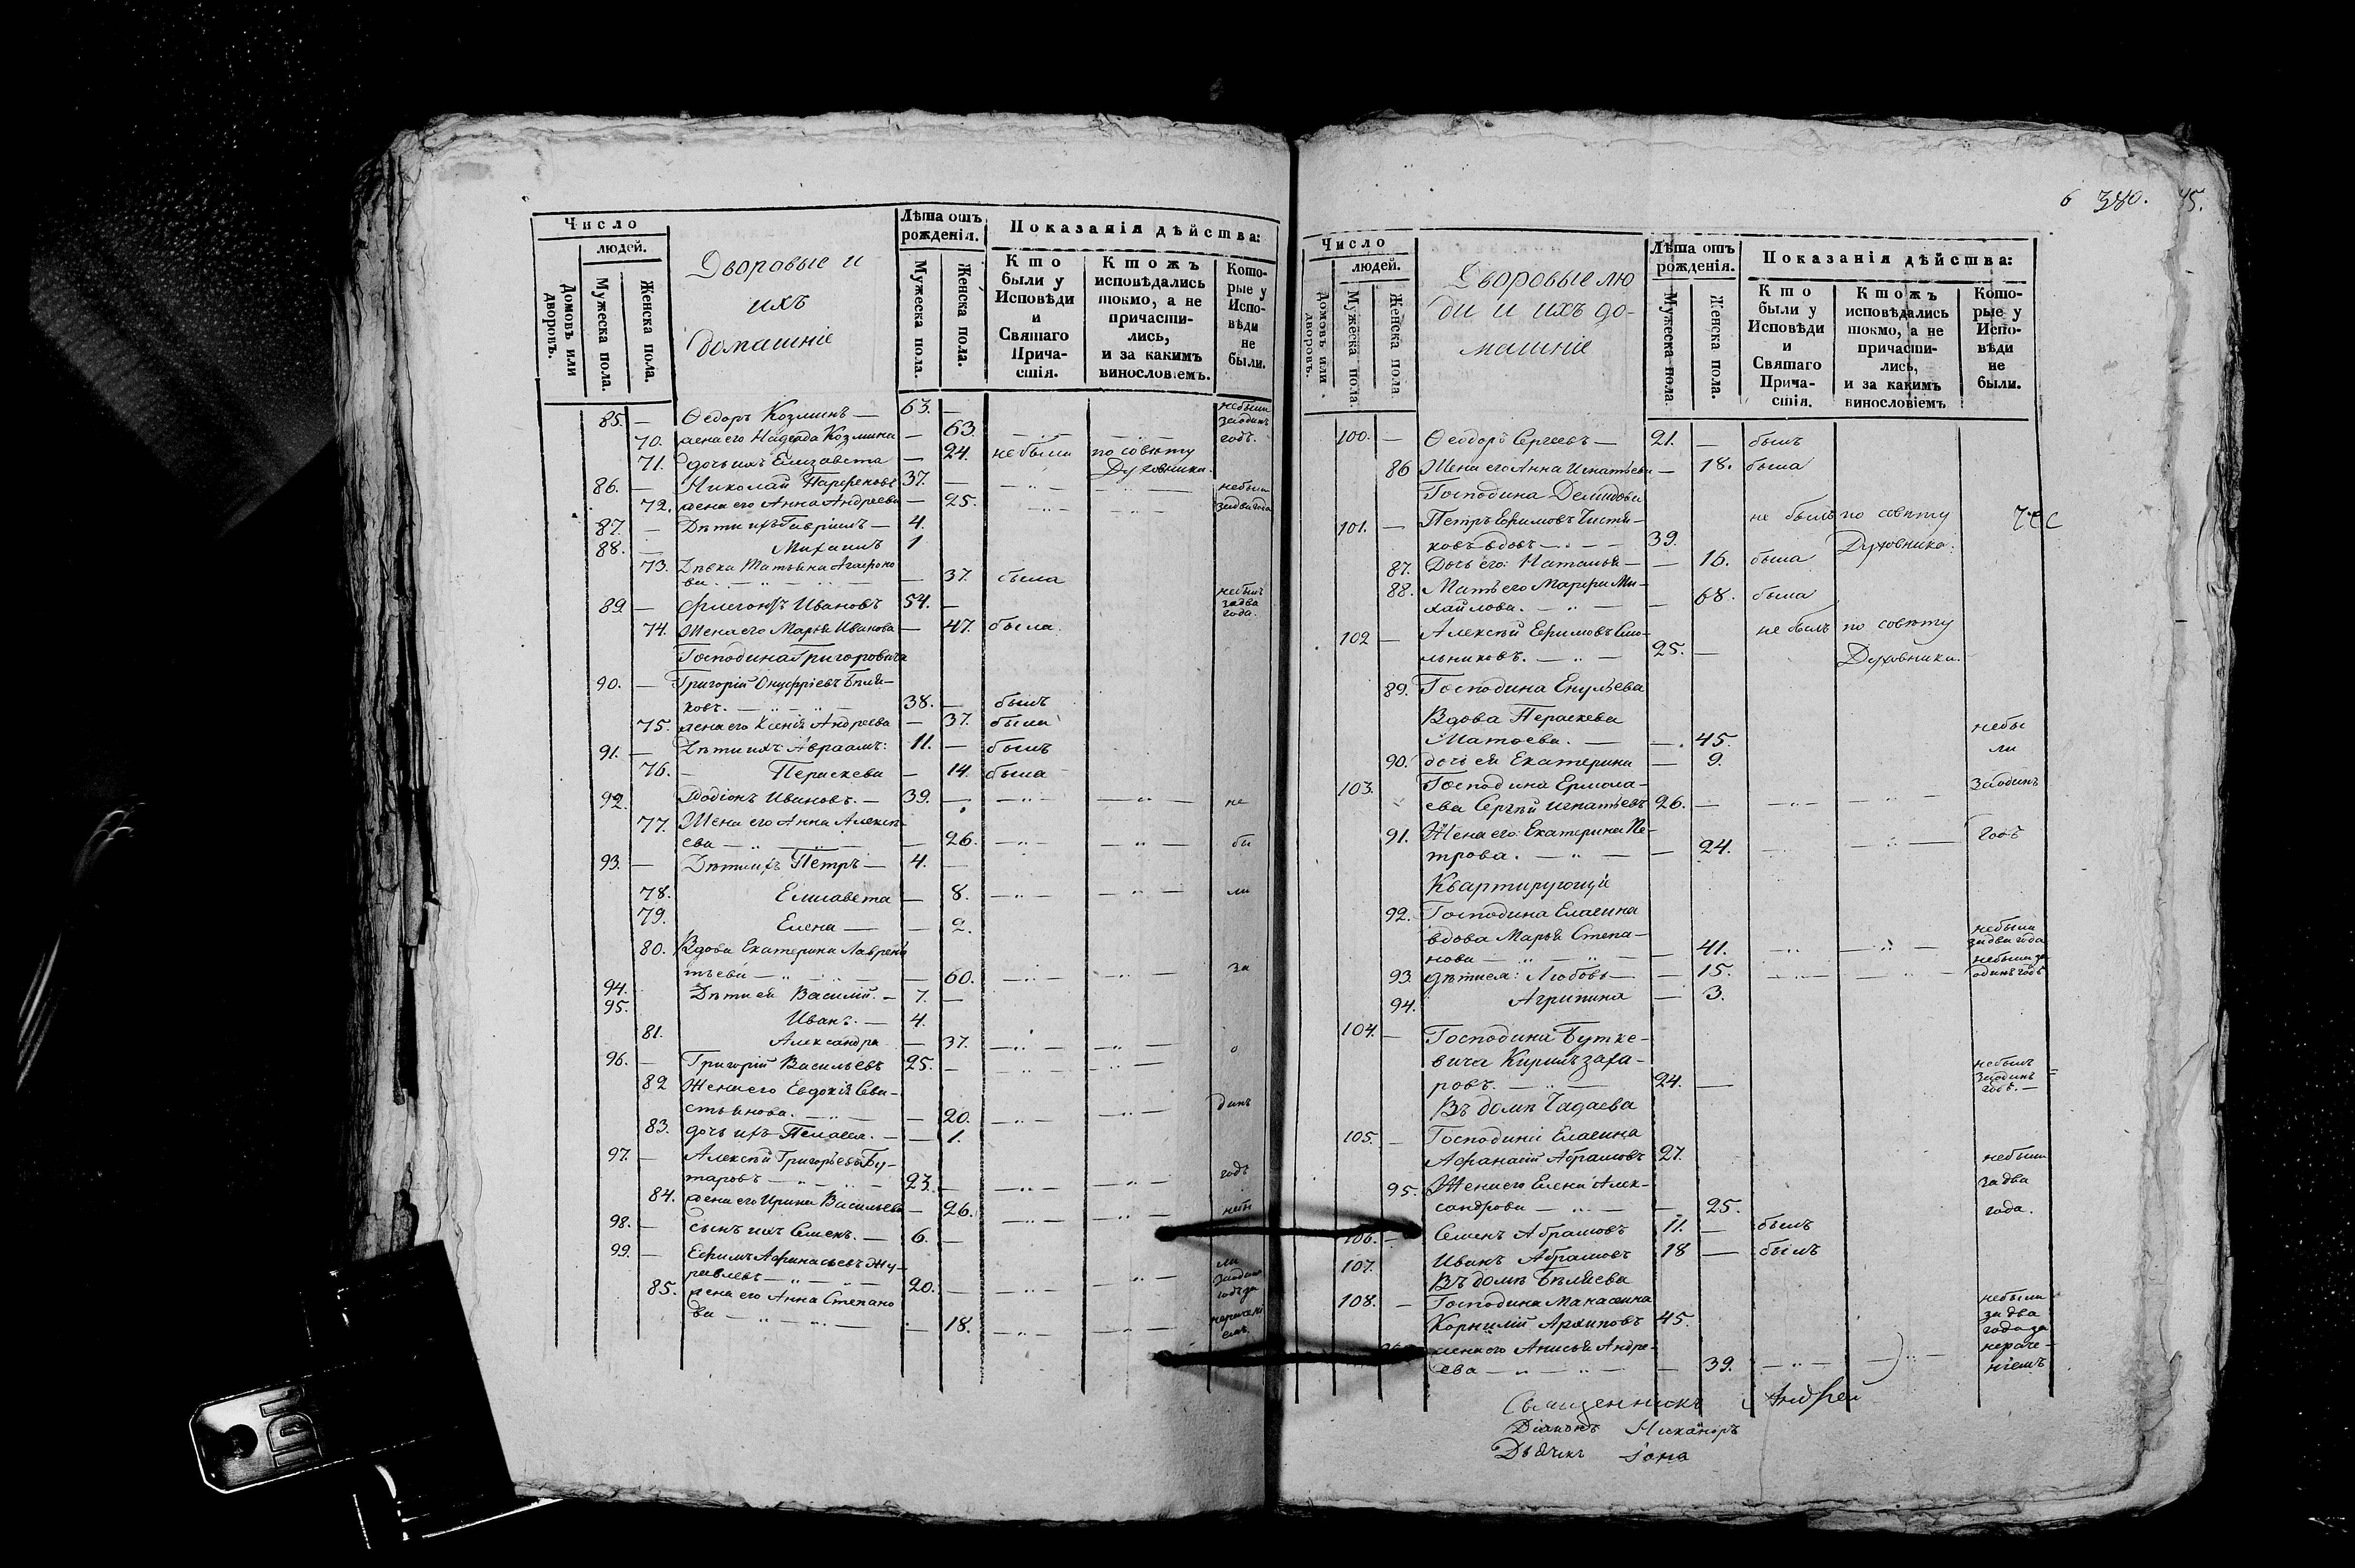 Число
людей.
Домовъ или дворовъ.
Мужеска пола.
Женска пола.
Дворовые и
ихъ
домашніе
Лѣта отъ рожденія.
Мужеска пола.
Женска пола.
Показанія дѣйства:
Кто были у Исповѣди и Святаго Причастія.
Ктожъ исповѣдались токмо, а не причастились, и за какимъ винословіемъ.
Которые у Исповѣди не были.
85. — Ѳедоръ Козминъ — 63. — небыли заодинъ годъ.
70. жена его Надежда Козмина — 63.
71. дочь ихъ Елизавета — 24. не была по совѣту Духовника.
86. — Николай Парфеновъ 37. — небыли задвагода
72. жена его Анна Андреева — 25.
87. — Дѣти ихъ Гавріилъ — 4.
88. — Михаилъ 1
73. Дѣвка Татьяна Агафоно
ва. — 37. была
89 — Флегонтъ Ивановъ 54. — небылъ задва года.
74. Жена его Марья Иванова — 47. была.
Господина Григоровича
90. — Григорій Онуфріевъ Бѣля-
ковъ. — 38. — былъ
75. жена его Ксенія Андреева — 37. была
91. — Дѣти ихъ: Авраамъ: 11. — былъ
76. — Параскева — 14. была
92. Родіонъ Ивановъ. — 39. — не
77. Жена его Анна Алексѣ-
ева — 26. бы
93. — Дѣти ихъ Петръ — 4. —
78. Елисавета — 8. ли
79. Елена — 2.
80. Вдова Екатерина Лаврень
тьева — 60. за
94. Дѣти ея Василій. — 7. —
95. Иванъ. — 4.
81. Александра — 37. о
96. — Григорій Васильевъ 25. —
82 Жена его Евдокія Сева-
стьянова. — 20. динъ
83. дочь ихъ Пелагея. — 1.
97. — Алексѣй Григорьевъ Бу-
таровъ — 23. — годъ
84. жена его Ирина Васильева — 26.
98. — сынъ ихъ Семенъ. — 6. —
99. — Ефимъ Афанасьевъ Жу-
равлевъ — 20. — заодинъ
85. жена его Анна Степано
ва — 18.
6 380. 45.
Число
людей.
Домовъ или дворовъ.
Мужеска пола.
Женска пола
Дворовые лю
ди и ихъ до-
машніе
Лѣта отъ рожденія.
Мужеска пола.
Женска пола.
Показанія дѣйства:
Кто были у Исповѣди и Святаго Причастія.
Ктожъ исповѣдались токмо, а не причастились, и за какимъ винословіемъ
Которые у Исповѣди не были.
100. — Ѳеодоръ Сергеевъ — 21. — былъ
86 Жена его Анна Игнатьева — 18. была
Господина Демидова
101. — Петръ Ефимовъ Чистя-
ковъ вдовъ — 39. не былъ по совѣту Духовника.
87. Дочь его: Наталья — 16. была
88. Мать его Марфа Ми-
хайлова. — 68. была
102 — Алексѣй Ефимовъ Смо-
льниковъ. — 25. — не былъ по совѣту Духовника.
89. Господина Енульева
Вдова Параскева
Матвеева. — 45. небы
90. дочь ея Екатерина — 9. ли
103. Господина Ермола-
ева Сергѣй Игнатьевъ 26. — заодинъ
91. Жена его: Екатерина Пе-
трова. — 24. годъ
Квартирующій
92. Господина Елагина
вдова Марья Степа-
нова — 41. небыли задва года
93. дѣти ея: Любовь — 15. небыли за одинъ годъ
94. Агрипина — 3.
104. — Господина Бутке-
вича Кирилъ Заха-
ровъ. — 24. — небылъ заодинъ годъ. —
Въ домѣ Чадаева
105. — Господина Елагина
Афанасій Абрамовъ 27. небыли
95. Жена его Елена Алек-
сандрова — 25. за два года.
106. — Семенъ Абрамовъ 11. — былъ
107. Иванъ Абрамовъ 18 — былъ
Въ домѣ Бѣляева
108. — Господина Манасеина
Корнилій Архиповъ 45. небыли за два года за нераче-
жена его Анисья Андре-
ева — 39. ніемъ
Священникъ Андрей
Діаконъ Никаноръ
Дьячекъ Іона